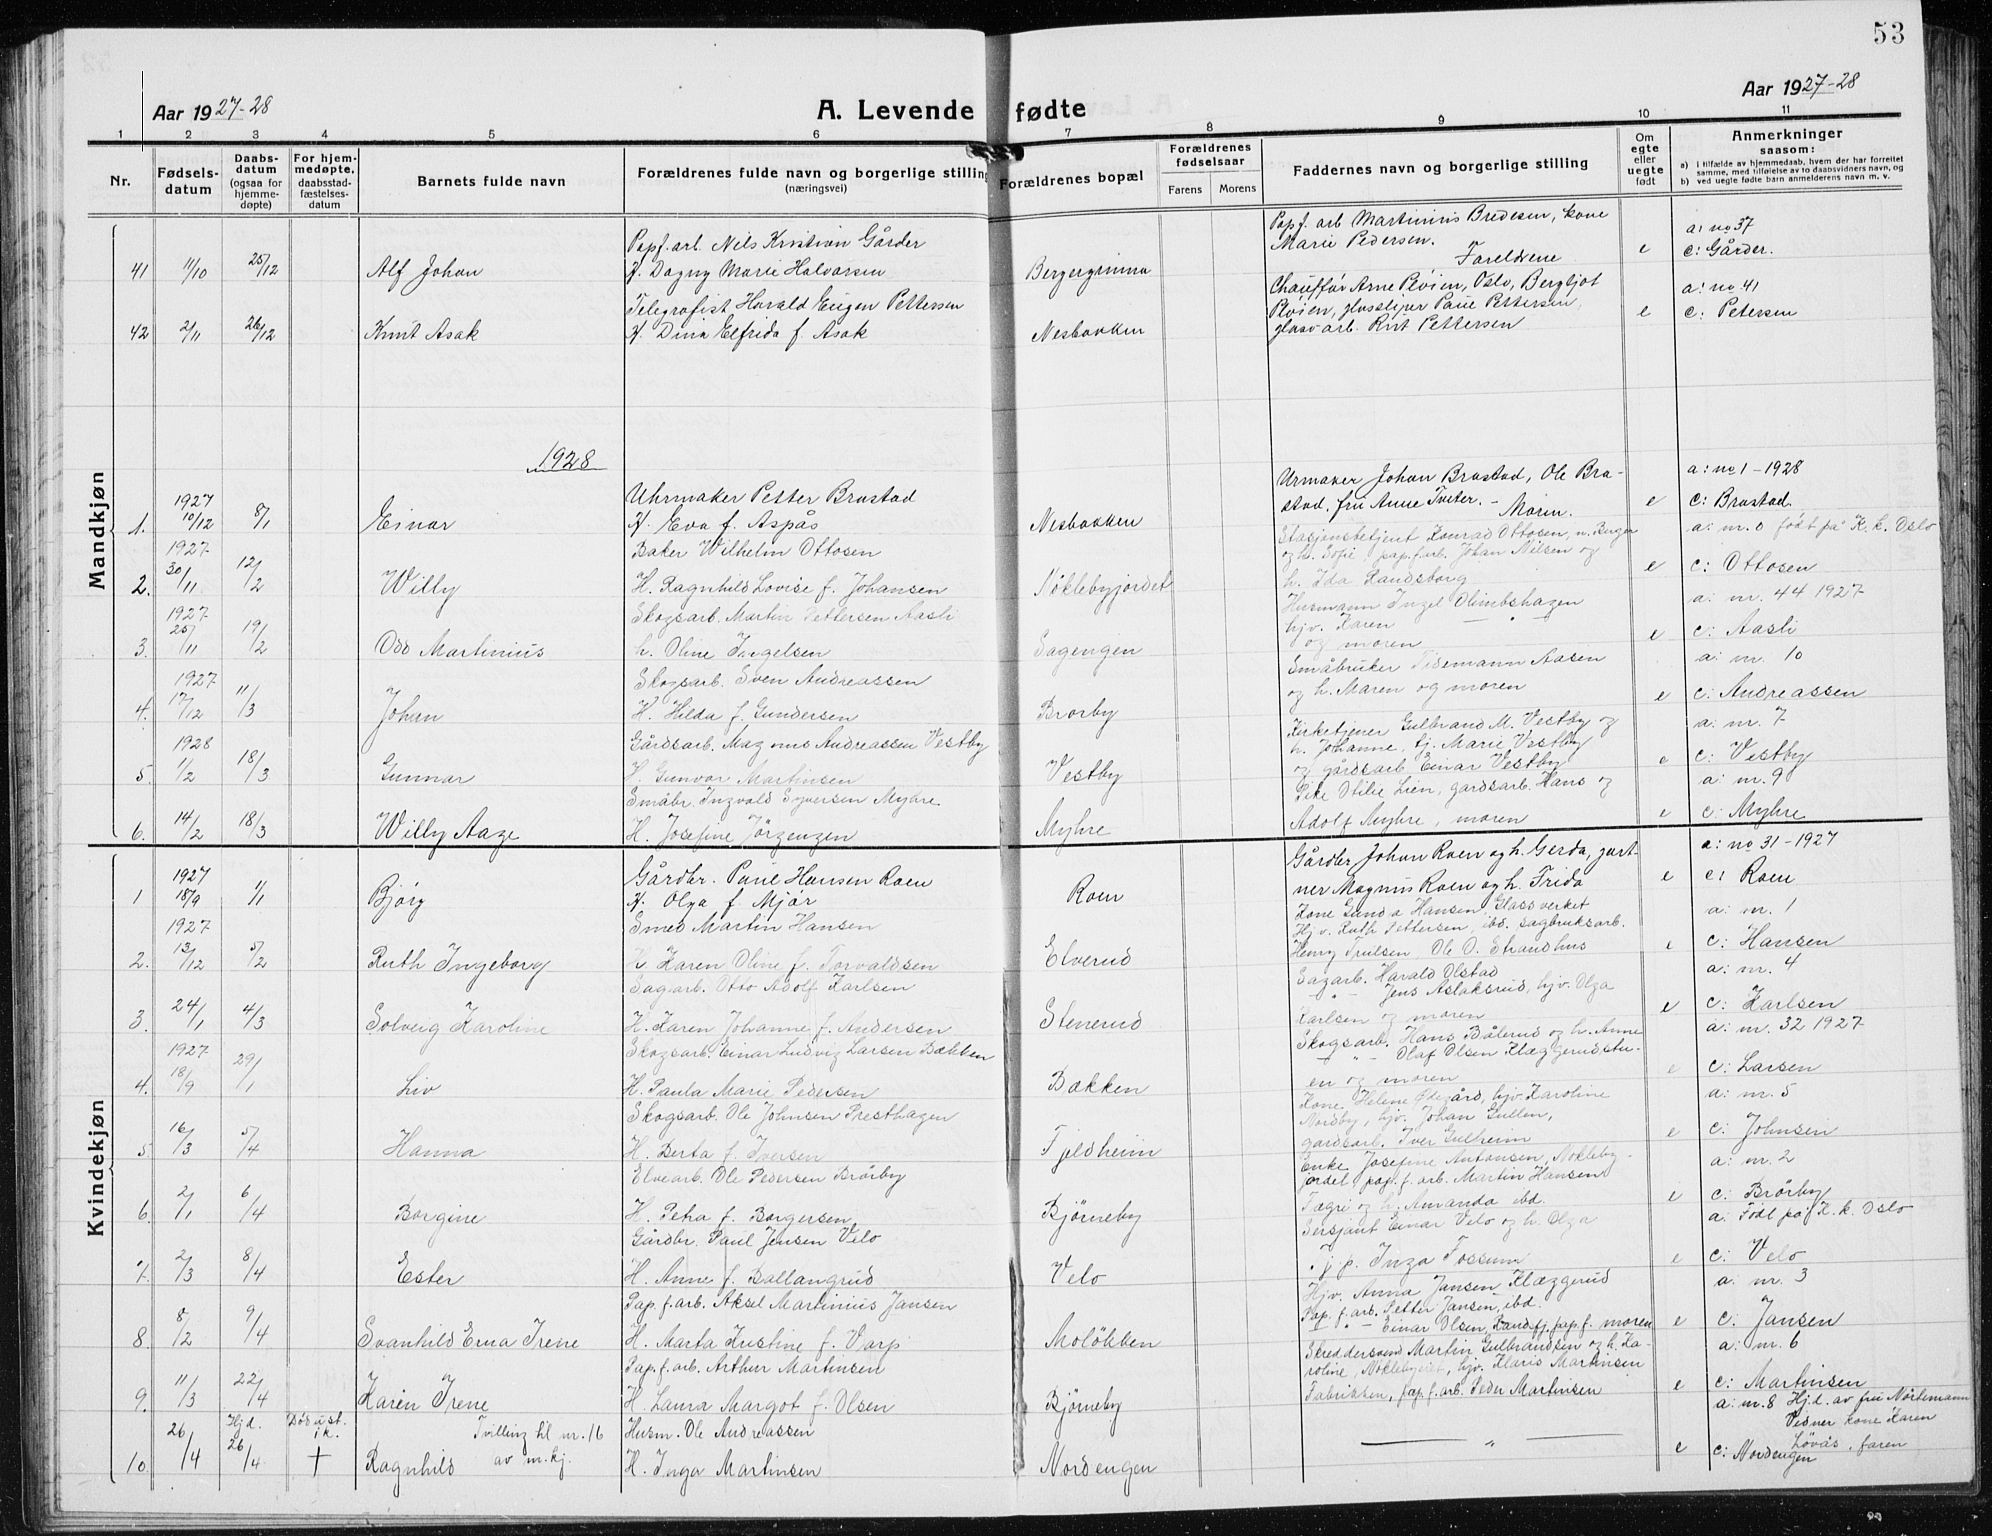 53
Aar 1927-28
A. Levende fødte
Aar 1927-28
1 2 3 4 5 6 7 8 9 10 11
Nr.
Fødselsdatum
Daabsdatum (ogsaa for hjemmedøpte)
For hjemmedøpte, daabsstadfæstelsesdatum
Barnets fulde navn
Forældrenes fulde navn og borgerlige stilling (næringsvei)
Forældrenes bopæl
Forældrenes fødselsaar
Farens Morens
Faddernes navn og borgerlige stilling
Om egte eller uegte født
Anmerkninger saasom:
a) i tilfælde av hjemmedaab, hvem der har forrettet samme, med tilføielse av to daabsvidners navn, og
b) ved uegte fødte barn anmelderens navn m. v.
Mandkjøn
Papf. arb. Nils Kristian Gårder
Papf. arb Martinius Bredesen, kone
a: no 37
41 11/10 25/12 Alf Johan
H. Dagny Marie Halvorsen
Marie Pedersen. Foreldrene
e c: Gårder.
Telegrafist Harald Eugen Pettersen
Chauffør Arne Pløien, Oslo, Bergljot
a: no 41
42 2/11 26/12 Knut Asak
H. Dina Elfrida f. Asak
Nesbakken
Pløien, glassliper Paul Pettersen,
glass arb. Knut Pettersen
e c: Petersen
1928
1927 Uhrmaker Petter Brastad
Urmaker Johan Brastad, Ole Bra-
a: no 1-1928
1. 10/12 8/1 Einar
H. Eva f. Aspås
Nesbakken
stad, fru Anne Tveter. - Moren.
e c: Brastad.
1927 Baker Wilhelm Ottosen
Stasjonsbetjent Konrad Ottosen, n. Berger
a: nr. 0 født på K. k. Oslo
2. 30/11 12/2 Willy
H. Ragnhild Lovise f. Johansen
Nøklebyjordet
og h. Sofie, pap. f. arb. Johan Nilsen og
h. Ida Randsborg
e c: Ottosen
1927 Skogsarb. Martin Pettersen Aasli
Husmann Ingel Olimbshagen
a: nr. 44 1927
3. 25/11 19/2 Odd Martinius
h. Oline Ingelsen
Sagengen
hjv. Karen
og moren
e c: Aasli
1927 Skogsarb. Sven Andreassen
Småbruker Tidemann Aasen
a: nr. 10
4. 17/12 11/3 Johan
H. Hilda f. Gundersen
Brorby
og h. Maren og moren
e c: Andreassen
1928 Gårdsarb. Magnus Andreassen Vestby
Kirketjener Gulbrand M. Vestby og
a: nr. 7
5. 1/2 18/3 Gunnar
H. Gunvor Martinsen
Vestby
h. Johanne, tj. Marie Vestby
og gårdsarb Einar Vestby
e c: Vestby
Småbr. Ingvald Syversen Myhre
Pike Otilie Lien, gardsarb. Hans og
a: nr. 9
6. 14/2 18/3 Willy Aage
H. Josefine Jörgensen
Myhre
Adolf Myhre, moren
e c: Myhre
Kvindekjøn
1927 Gårdbr. Paul Hansen Roen
Gårdbr Johan Roen og h. Gerda, gart-
a: no 31-1927
1 18/9 1/1 Bjørg
H. Olga f. Mjör
Roen
ner Magnus Roen og h. Frida
e c: Roen
1927 Smed Martin Hansen
Kone Gunda Hansen, Glassverket
a: nr. 1
Hjv. Ruth Pettersen, ibd. sagbruksarb.
2. 13/12 5/2 Ruth Ingeborg
H Karen Oline f. Torvaldsen
Elverud
Henry Truelsen, Ole O. Strandhus
e c: Hansen
Sagarb. Otto Adolf Karlsen
Sagarb. Harald Olstad
a: nr. 4
- " - Jens Aslaksrud, hjv. Olga
3. 24/1 4/3 Solveig Karoline
H. Karen Johanne f. Andersen
Stenerud
Karlsen og moren
e c: Karlsen
1927 Skogsarb. Einar Ludvig Larsen Bakken
Skogsarb. Hans Bålerud og h. Anne
a: nr. 32 1927
- " - Olaf Olsen Klæggerudstu-
4. 18/9 29/1 Liv
H. Paula Marie Pedersen
Bakken
en og moren
e c: Larsen
Skogsarb. Ole Johnsen Presthagen
Kone Helene Ødegård, hjv. Karoline
a: nr. 5
Nordby, hjv. Johan Gullen,
5 16/3 5/4 Hanna
H. Berta f. Iversen
Fjeldheim
gardsarb. Iver Gulheim
e c: Johnsen
Elvearb. Ole Pedersen Brörby
Enke Josefine Antonsen, Nökleby-
a: nr. 2
jordet pap. f. arb. Martin Hansen
6. 2/1 6/4 Borgine
H. Petra f. Borgersen
Bjørneby
Fagri og h. Amanda ibd.
e c: Brörby
Gårdbr. Paul Jensen Velo
Sersjant Einar Velo og h. Olga
a: Født på K. k. Oslo
7. 2/3 8/4 Ester
H. Anne f. Ballangrud
Velo
Tj. p. Inga Fossum
e c: Velo
Pap. f. arb. Aksel Martinius Jansen
Hjv. Anna Jansen Klæggerud
a: nr. 3
Pap. f. arb. Petter Jansen, ibd.
8. 8/2 9/4 Svanhild Erna Irene
H. Marta Kristine f. Varp
Moløkken
- " - Einar Olsen, Randsfj. pap. f. moren
e c: Jansen
Pap. f. arb. Arthur Martinsen
Skreddersvend Martin Gulbrandsen og h. Ka-
a: nr. 6
roline, Nöklebyeiet, hjv. Klaris Martinsen
9. 11/3 22/4 Karen Irene
H. Laura Margot f. Olsen
Bjørneby
Fabrikken, pap. f. arb. Peder Martinsen
e c: Martinsen
26/4 Hjd. 26/4 Døbt st. ik. †
Tvilling til nr. 16 av m. kj.
Husm. Ole Andreassen
a: nr. 8 Hjd. av fru Nörtemann
Vidner kone Karen
10. Ragnhild
H. Inga Martinsen
Nordengen
"
e c: Nordengen
Løvås, faren